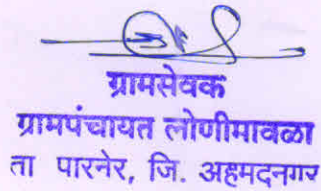 ग्रामसेवक
ग्रामपंचायत लोणीमावळा
ता पारनेर, जि. अहमदनगर